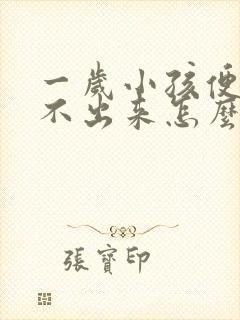 一歲小孩便
不出来怎麼
張寶印